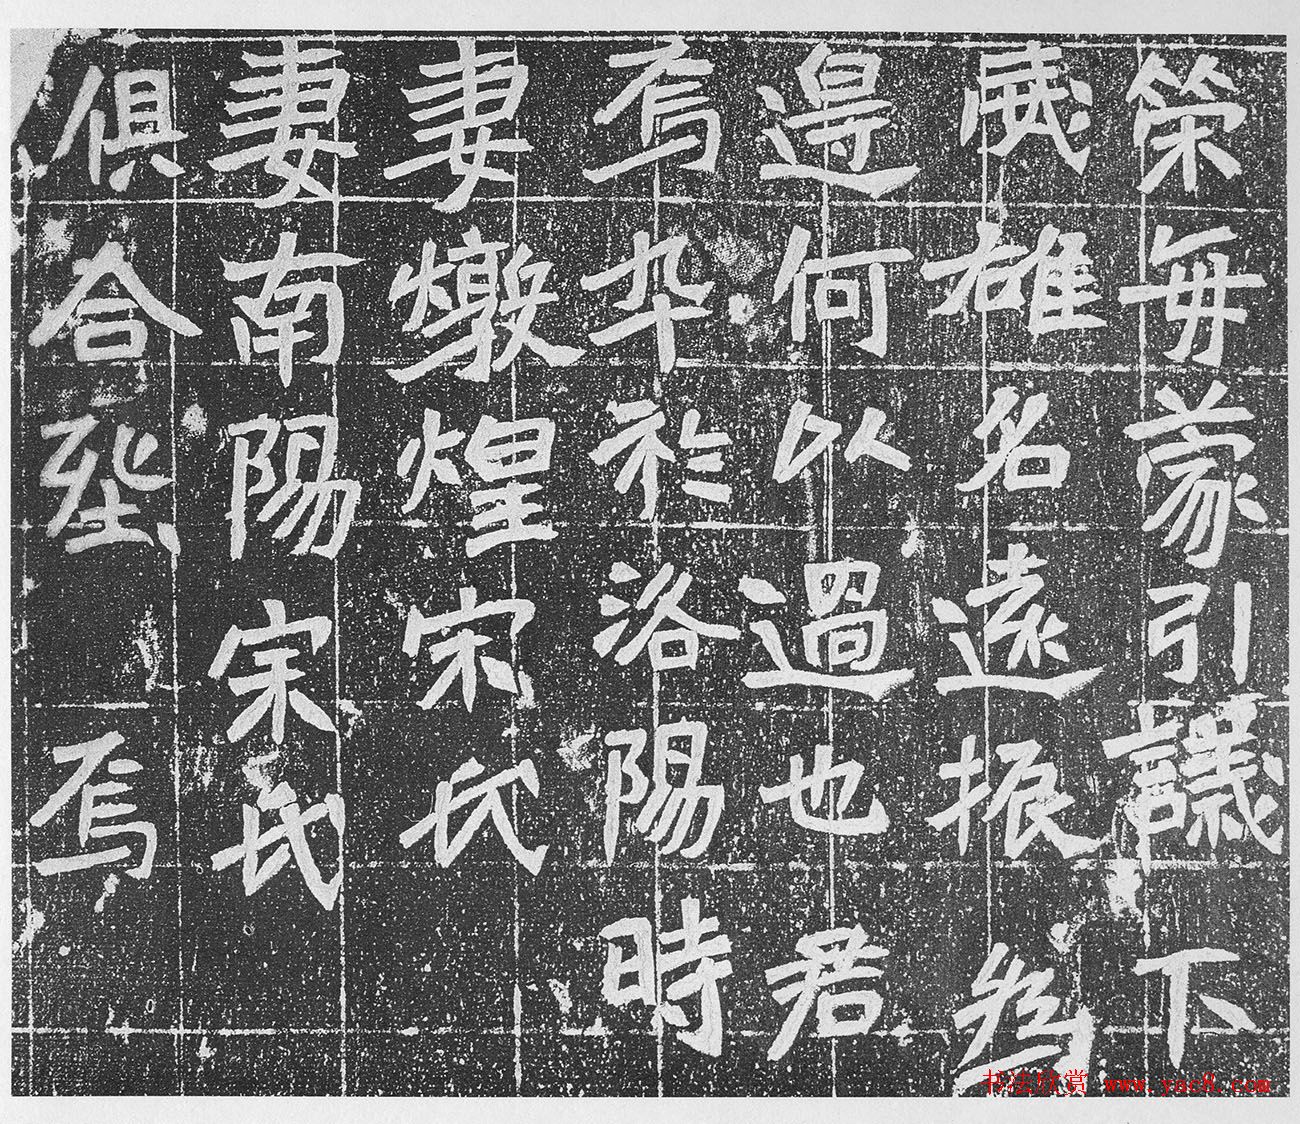 策每蒙引議下
威雄名遠振為
邊何以過也君
焉卒於洛陽時
妻燉煌宋氏
妻南陽宋氏
俱合塟焉
书法欣赏 www.yac8.com